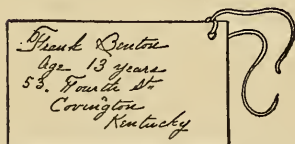 Frank Benton
Age 13 years
53. Fourth St.
Covington
Kentucky